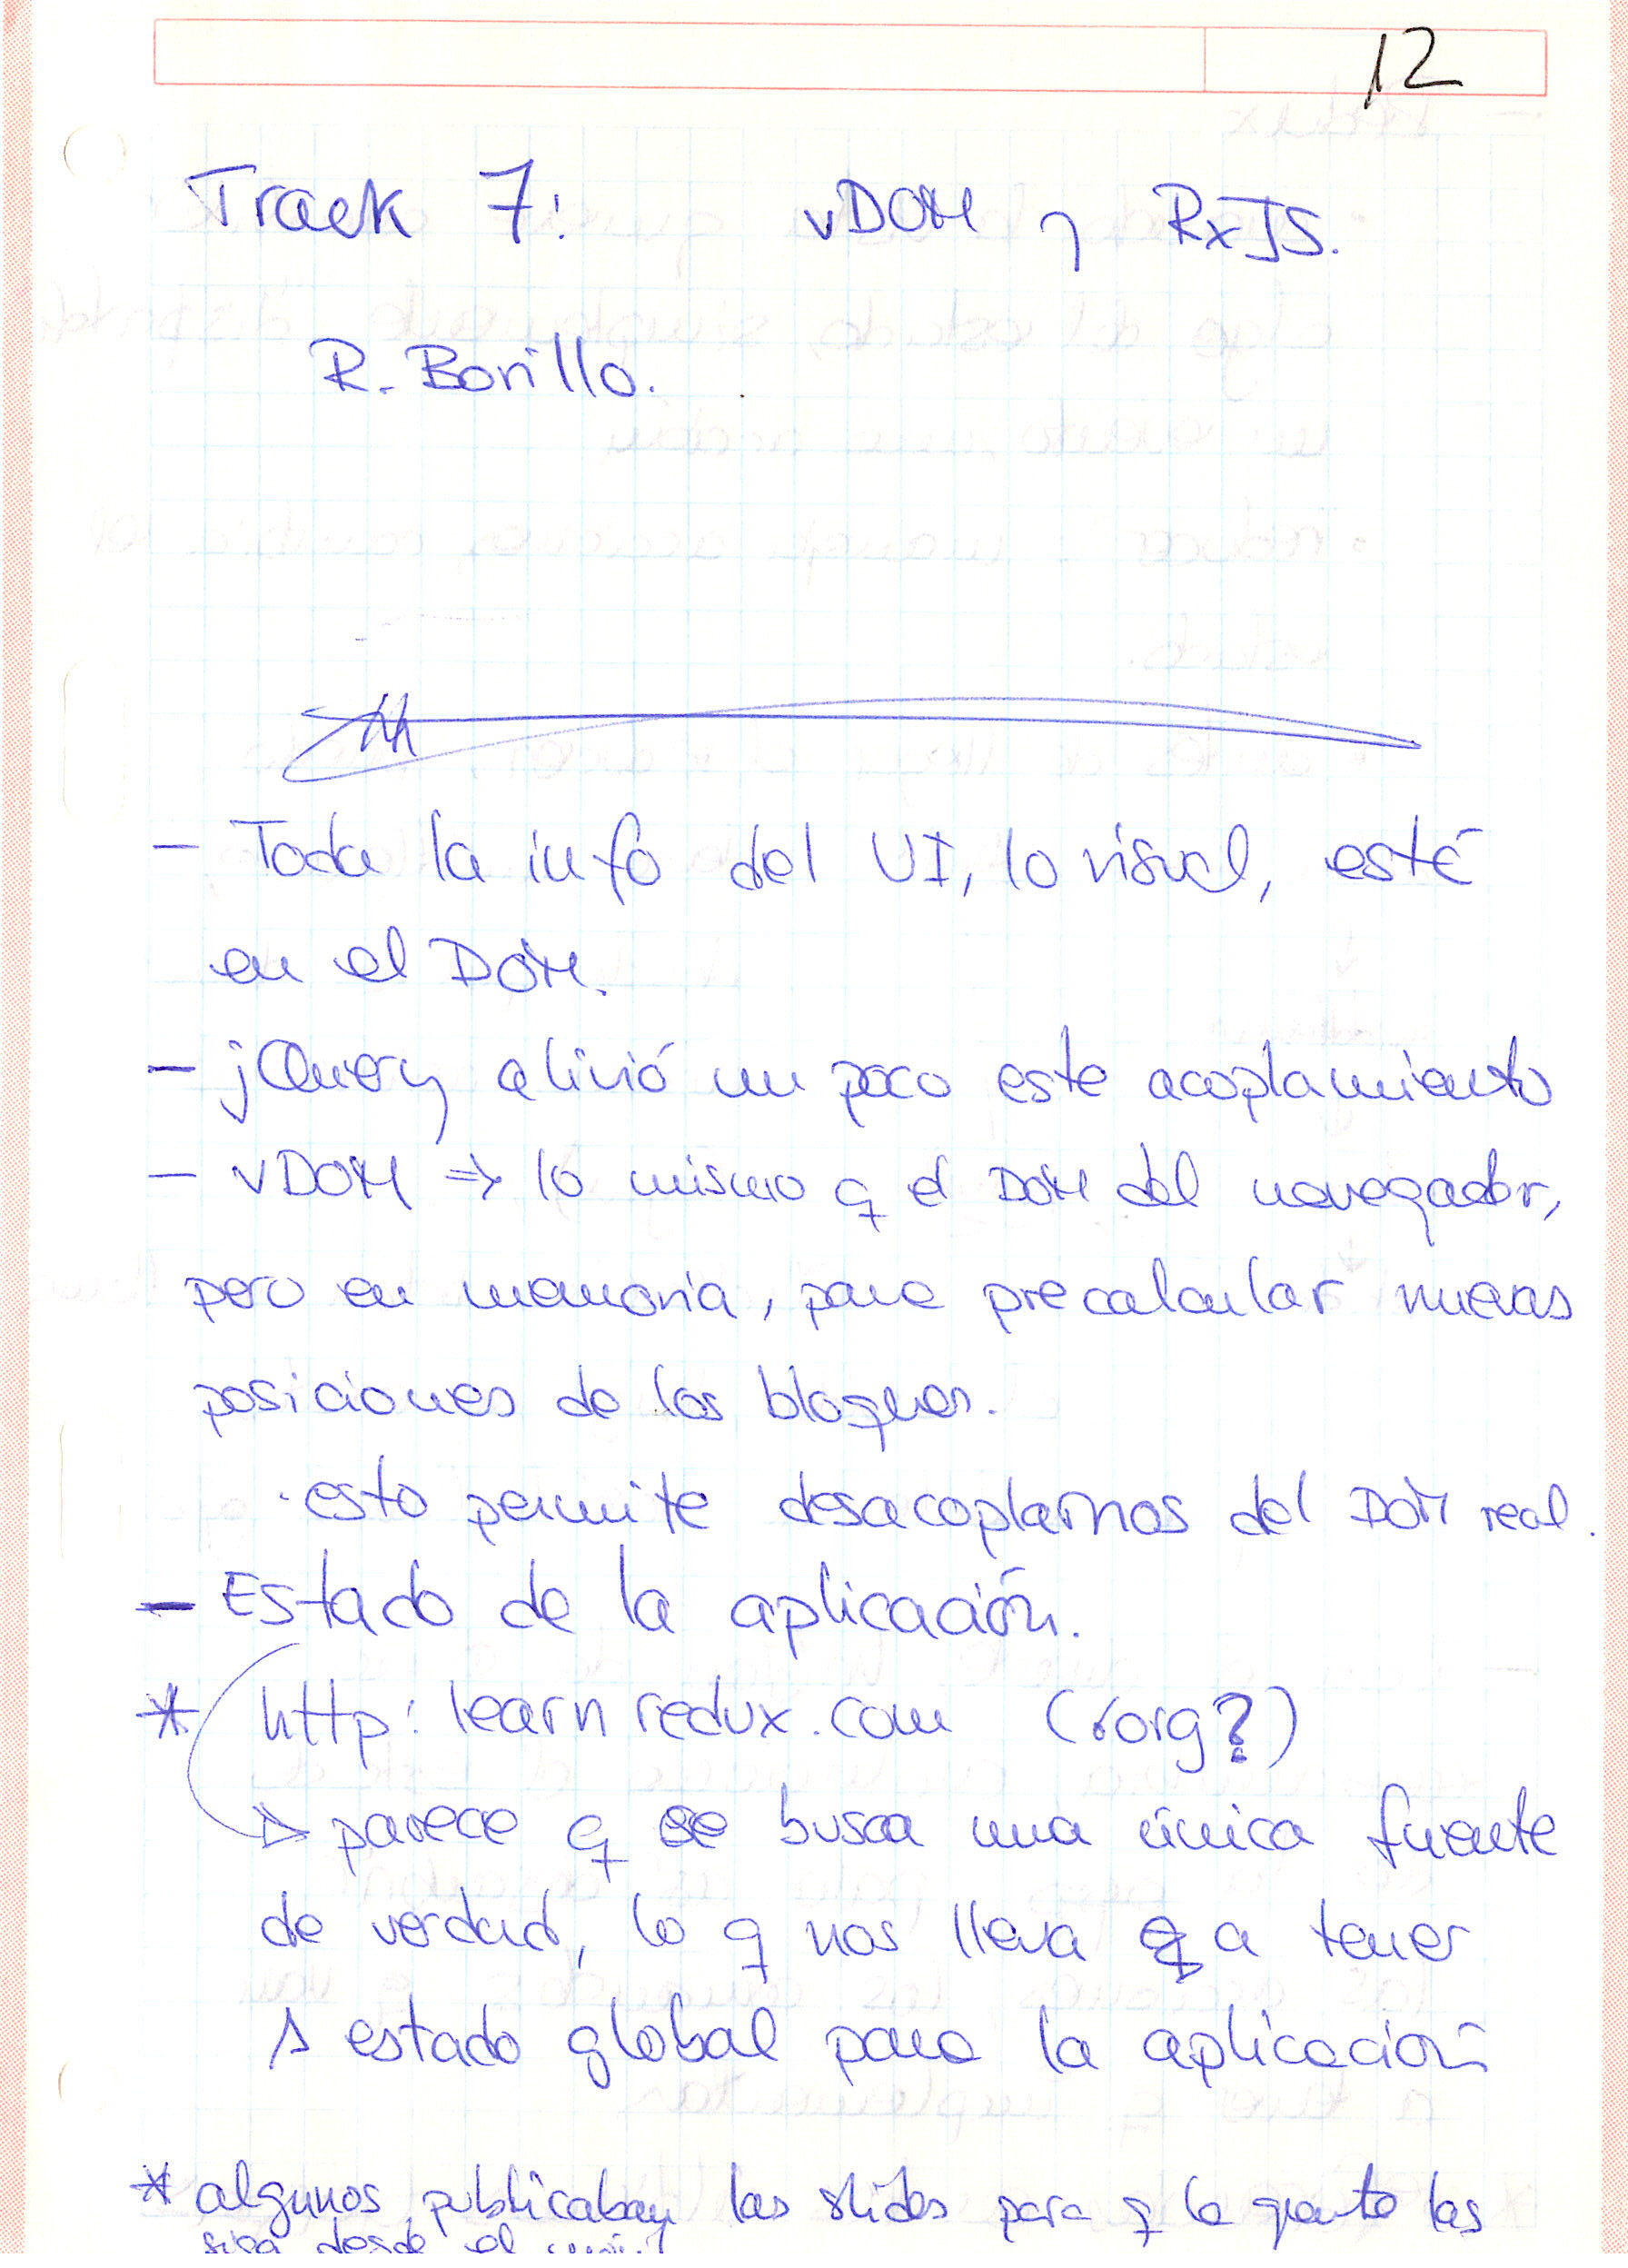 12
Track 7: vDOM y RxJS.
R. Borillo.
- Toda la info del UI, lo visual, está
en el DOM.
- jQuery alivió un poco este acoplamiento
- vDOM => lo mismo q el DOM del navegador,
pero en memoria, para precalcular nuevas
posiciones de los bloques.
· esto permite desacoplarnos del DOM real.
- Estado de la aplicación.
* http: learnredux.com (org?)
parece q se busca una única fuente
de verdad, lo q nos lleva a tener
1 estado global para la aplicación
* algunos publicaban las slides para q la gente las
siga desde el